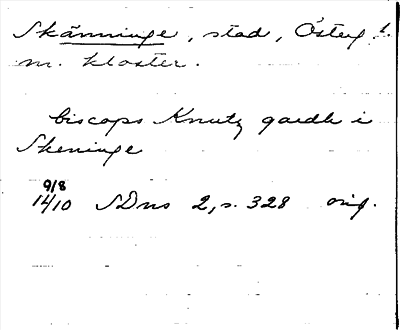 Skänninge, stad, Österg.l.
m. kloster.
biscops Knutz gardh i
Skeninge
9/8
14/10 SDns 2, s. 328 orig.